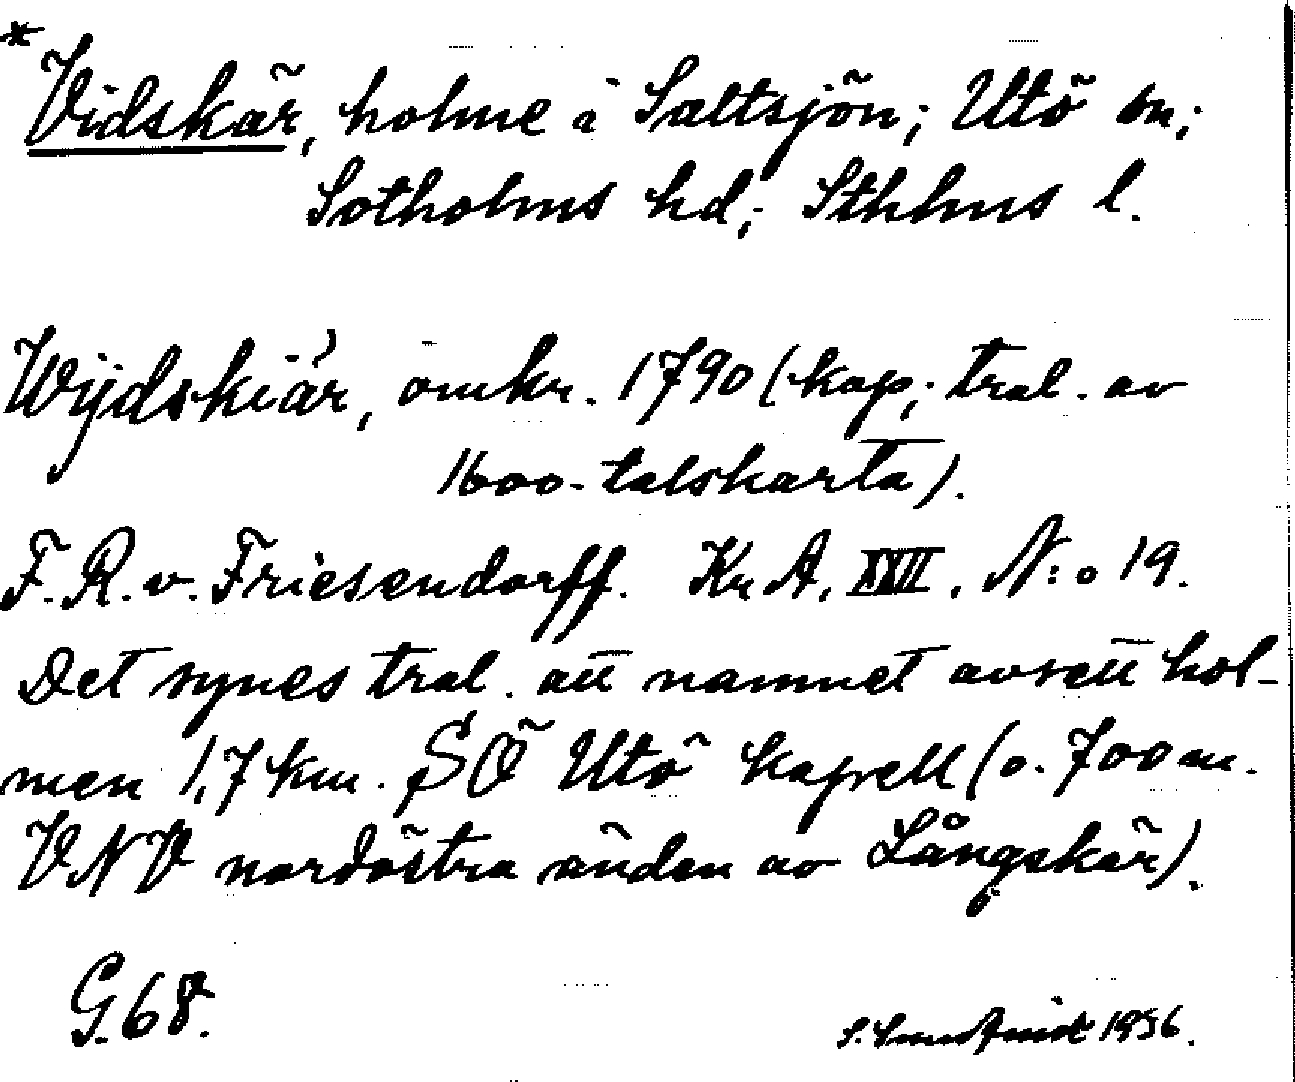 * Vidskär, holme i Saltsjön; Utö sn;
Sotholms hd; Sthlms l.
Wijdskiär, omkr. 1790 (kop; trol. av
1600-talskarta).
F. R. v. Friesendorff. Kr A. XXII. N:o 19.
Det synes trol. att namnet avsett hol-
men 1,7 km. SÖ Utö kapell (o. 700 m.
VNV nordöstra änden av Långskär).
G. 68.
1936.